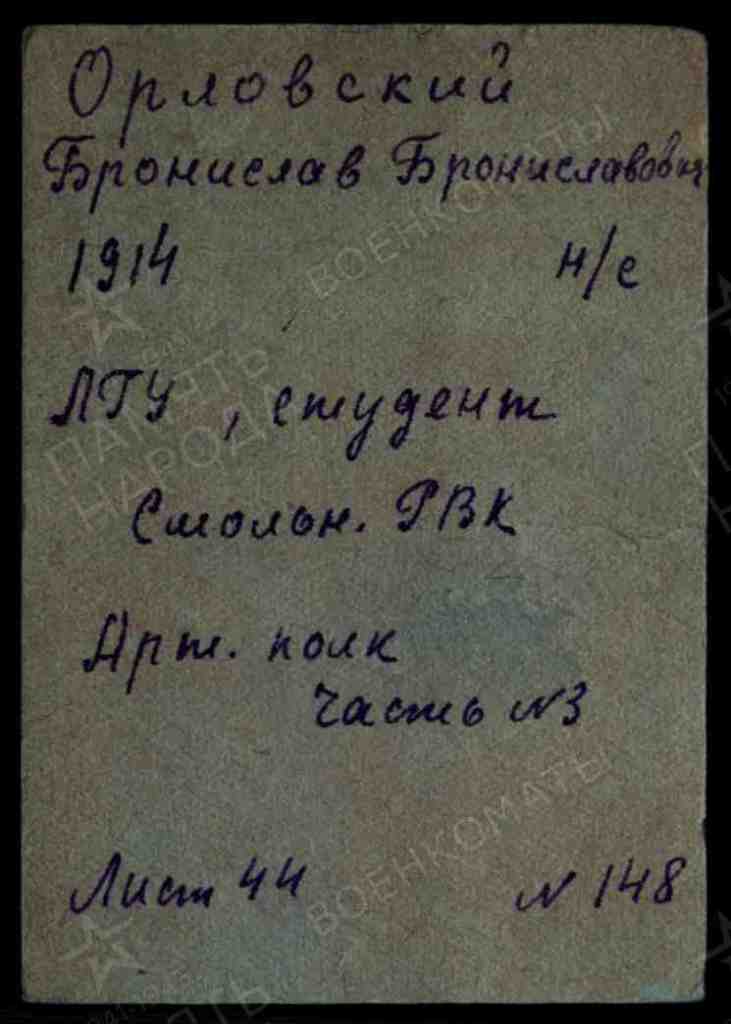 Орловский
Бронислав Брониславович
1914 н/с
ЛГУ, студент
Смольн. РВК
Арт. полк
часть №3
Лист 44 № 148
ВОЕНКОМАТЫ
ПАМЯТЬ
НАРОДА
ВОЕНКОМАТЫ